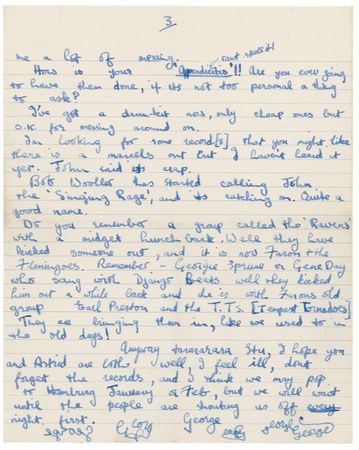 3.
me a lot of messing. can't spell it!
How is your Appendicitis'!! Are you ever going
to have them done, if its not too personal a thing
to ask?
I've got a drum-kit now, only cheap ones but
O.K. for messing around on.
I'm looking for some record[s] that you might like
there is a marvels out but I havent heard it
yet. John said its crap.
Bob Wooler has started calling John
the 'Singing Rage', and its catching on. Quite a
good name.
Do you remember a group called the 'Ravens'
with a midget hunch back. Well they have
kicked someone out, and it is now Faron & the
Flamingoes. Remember - Georgie Spruce or Gene Day
who sang with Django Beats well they kicked
him out a while back and he is with Furons old
group Earl Preston and the T.T.s. [Tempest Tornadoes]
They are bringing them in, like we used to in
the old days!
Anyway tararara Stu, I hope you
and Astrid are both well, I feel ill, dont
forget the records, and I think we may pop
to Hamburg January or Feb, but we will wait
until the people are shouting us off every
night first.
George
George